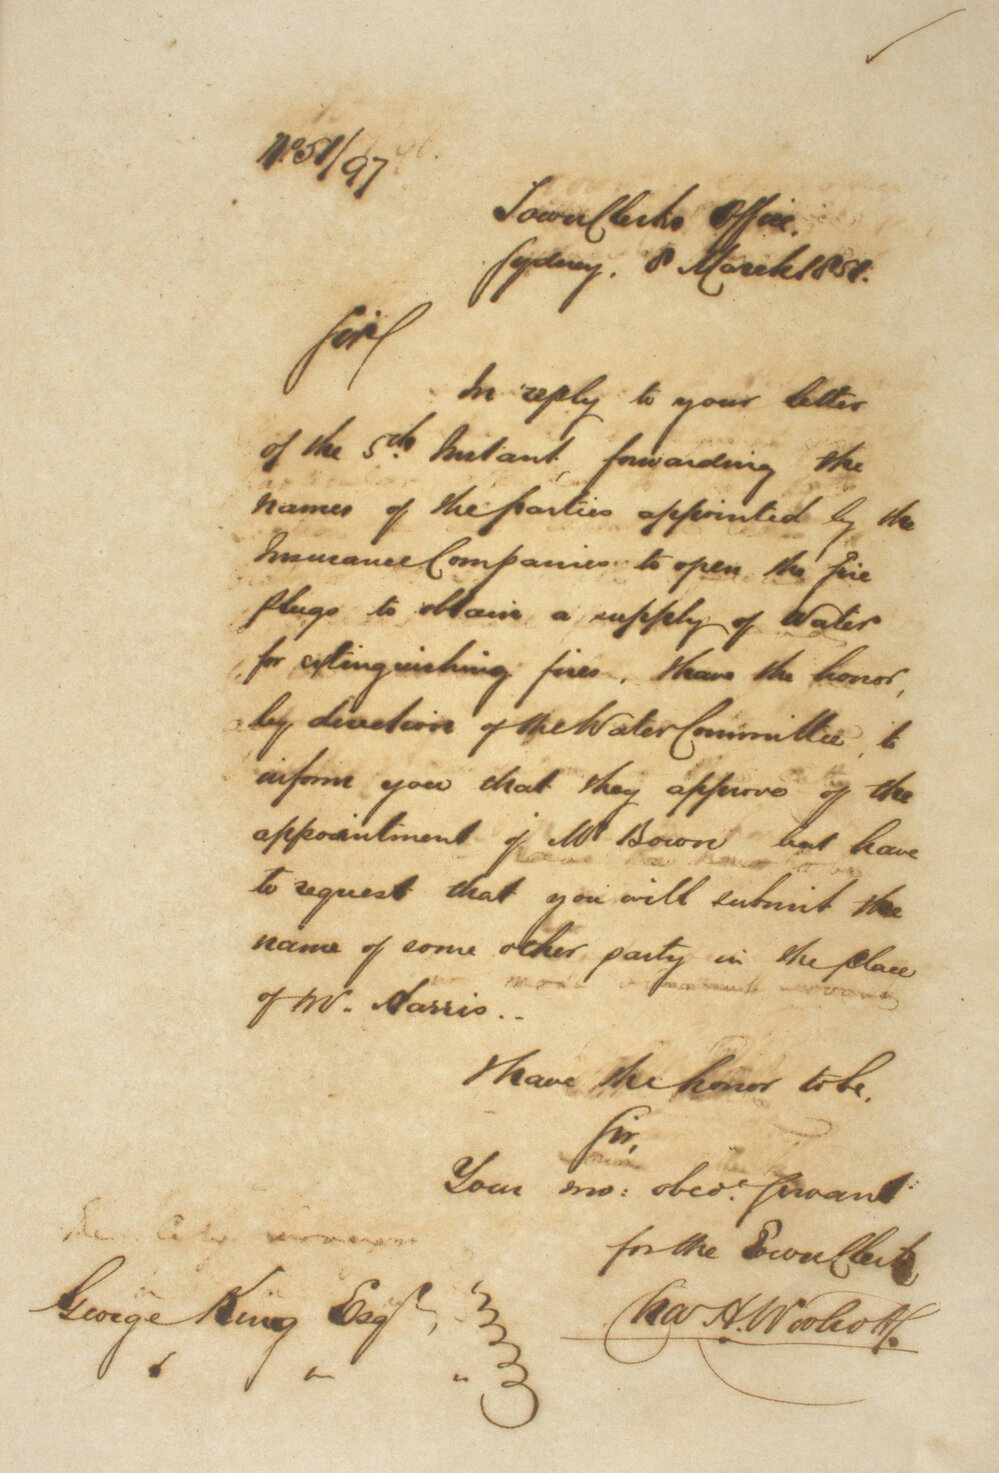 No 51/97
Town Clerks Office.
Sydney. 8 March 1851.
Sir
In reply to your letter
of the 5th. Instant, forwarding the
names of the parties appointed by the
Insurance Companies to open the fire
plugs to obtain a supply of Water
for extinguishing fires, I have the honor,
by direction of the Water Committee, to
inform you that they approve of the
appointment of Mr Bown but have
to request that you will submit the
name of some other party in the place
of Mr. Harris..
I have the honor to be,
Sir,
Your mo: obedt. Servant
for the Town Clerk
George King Esqr,
Chas H. Woolcott.